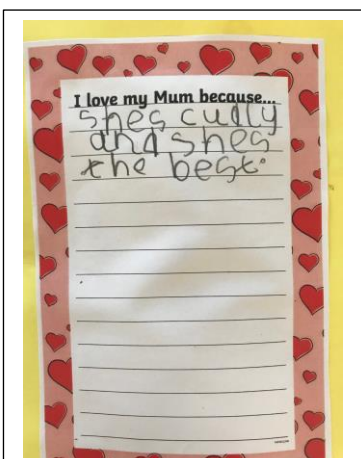 I love my Mum because...
shes cudly
and shes
the best.